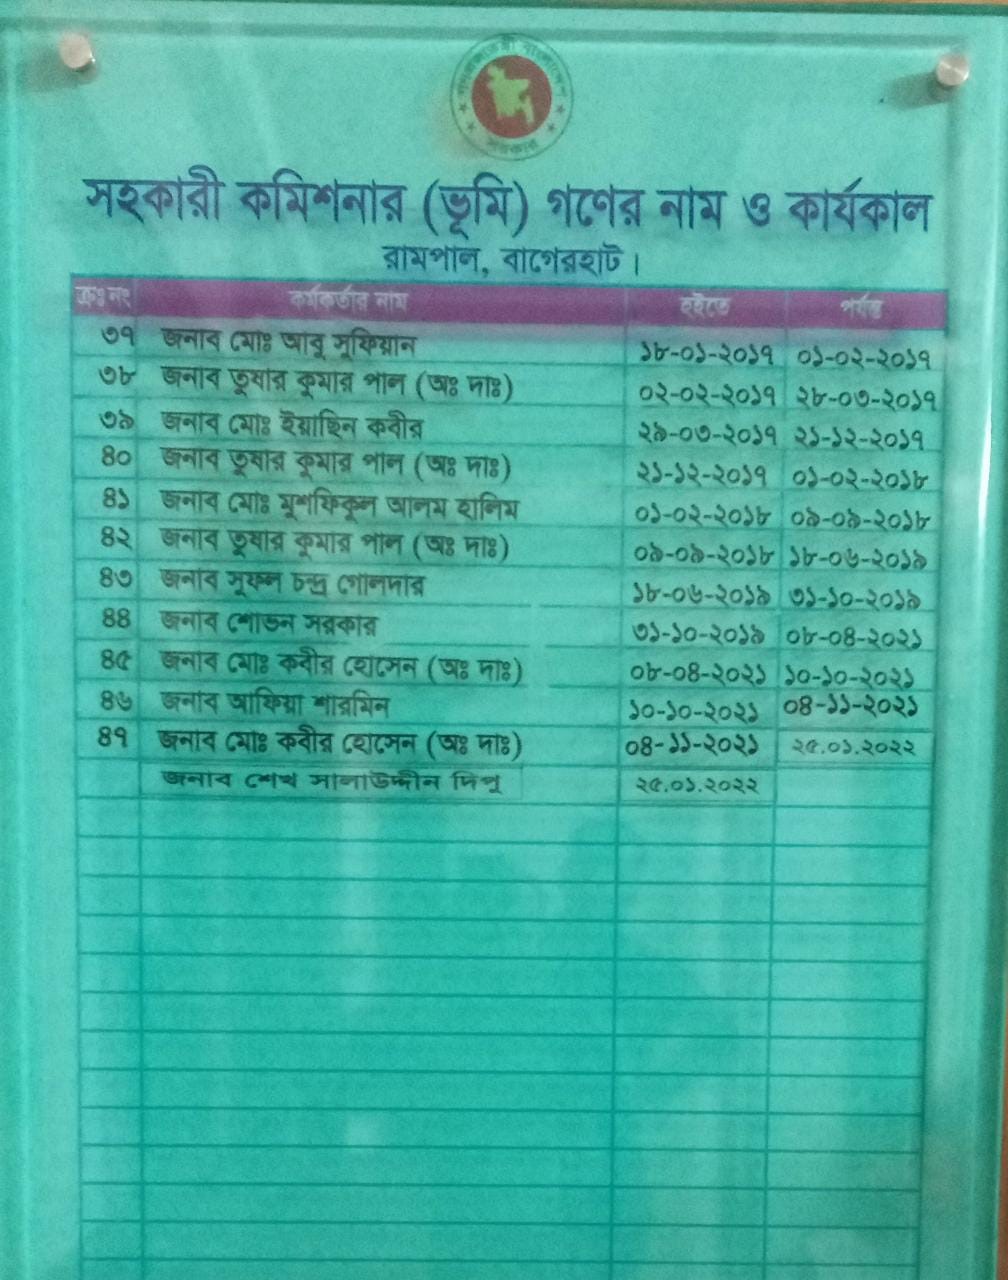 গণপ্রজাতন্ত্রী বাংলাদেশ
সরকার
সহকারী কমিশনার (ভূমি) গণের নাম ও কার্যকাল
রামপাল, বাগেরহাট।
ক্রঃ নং কর্মকর্তার নাম হইতে পর্যন্ত
৩৭ জনাব মোঃ আবু সুফিয়ান ১৮-০১-২০১৭ ০১-০২-২০১৭
৩৮ জনাব তুষার কুমার পাল (অঃ দাঃ) ০২-০২-২০১৭ ২৮-০৩-২০১৭
৩৯ জনাব মোঃ ইয়াছিন কবীর ২৯-০৩-২০১৭ ২১-১২-২০১৭
৪০ জনাব তুষার কুমার পাল (অঃ দাঃ) ২১-১২-২০১৭ ০১-০২-২০১৮
৪১ জনাব মোঃ মুশফিকুল আলম হালিম ০১-০২-২০১৮ ০৯-০৯-২০১৮
৪২ জনাব তুষার কুমার পাল (অঃ দাঃ) ০৯-০৯-২০১৮ ১৮-০৬-২০১৯
৪৩ জনাব সুফল চন্দ্র গোলদার ১৮-০৬-২০১৯ ৩১-১০-২০১৯
৪৪ জনাব শোভন সরকার ৩১-১০-২০১৯ ০৮-০৪-২০২১
৪৫ জনাব মোঃ কবীর হোসেন (অঃ দাঃ) ০৮-০৪-২০২১ ১০-১০-২০২১
৪৬ জনাব আফিয়া শারমিন ১০-১০-২০২১ ০৪-১১-২০২১
৪৭ জনাব মোঃ কবীর হোসেন (অঃ দাঃ) ০৪-১১-২০২১ ২৫.০১.২০২২
জনাব শেখ সালাউদ্দীন দিপু ২৫.০১.২০২২